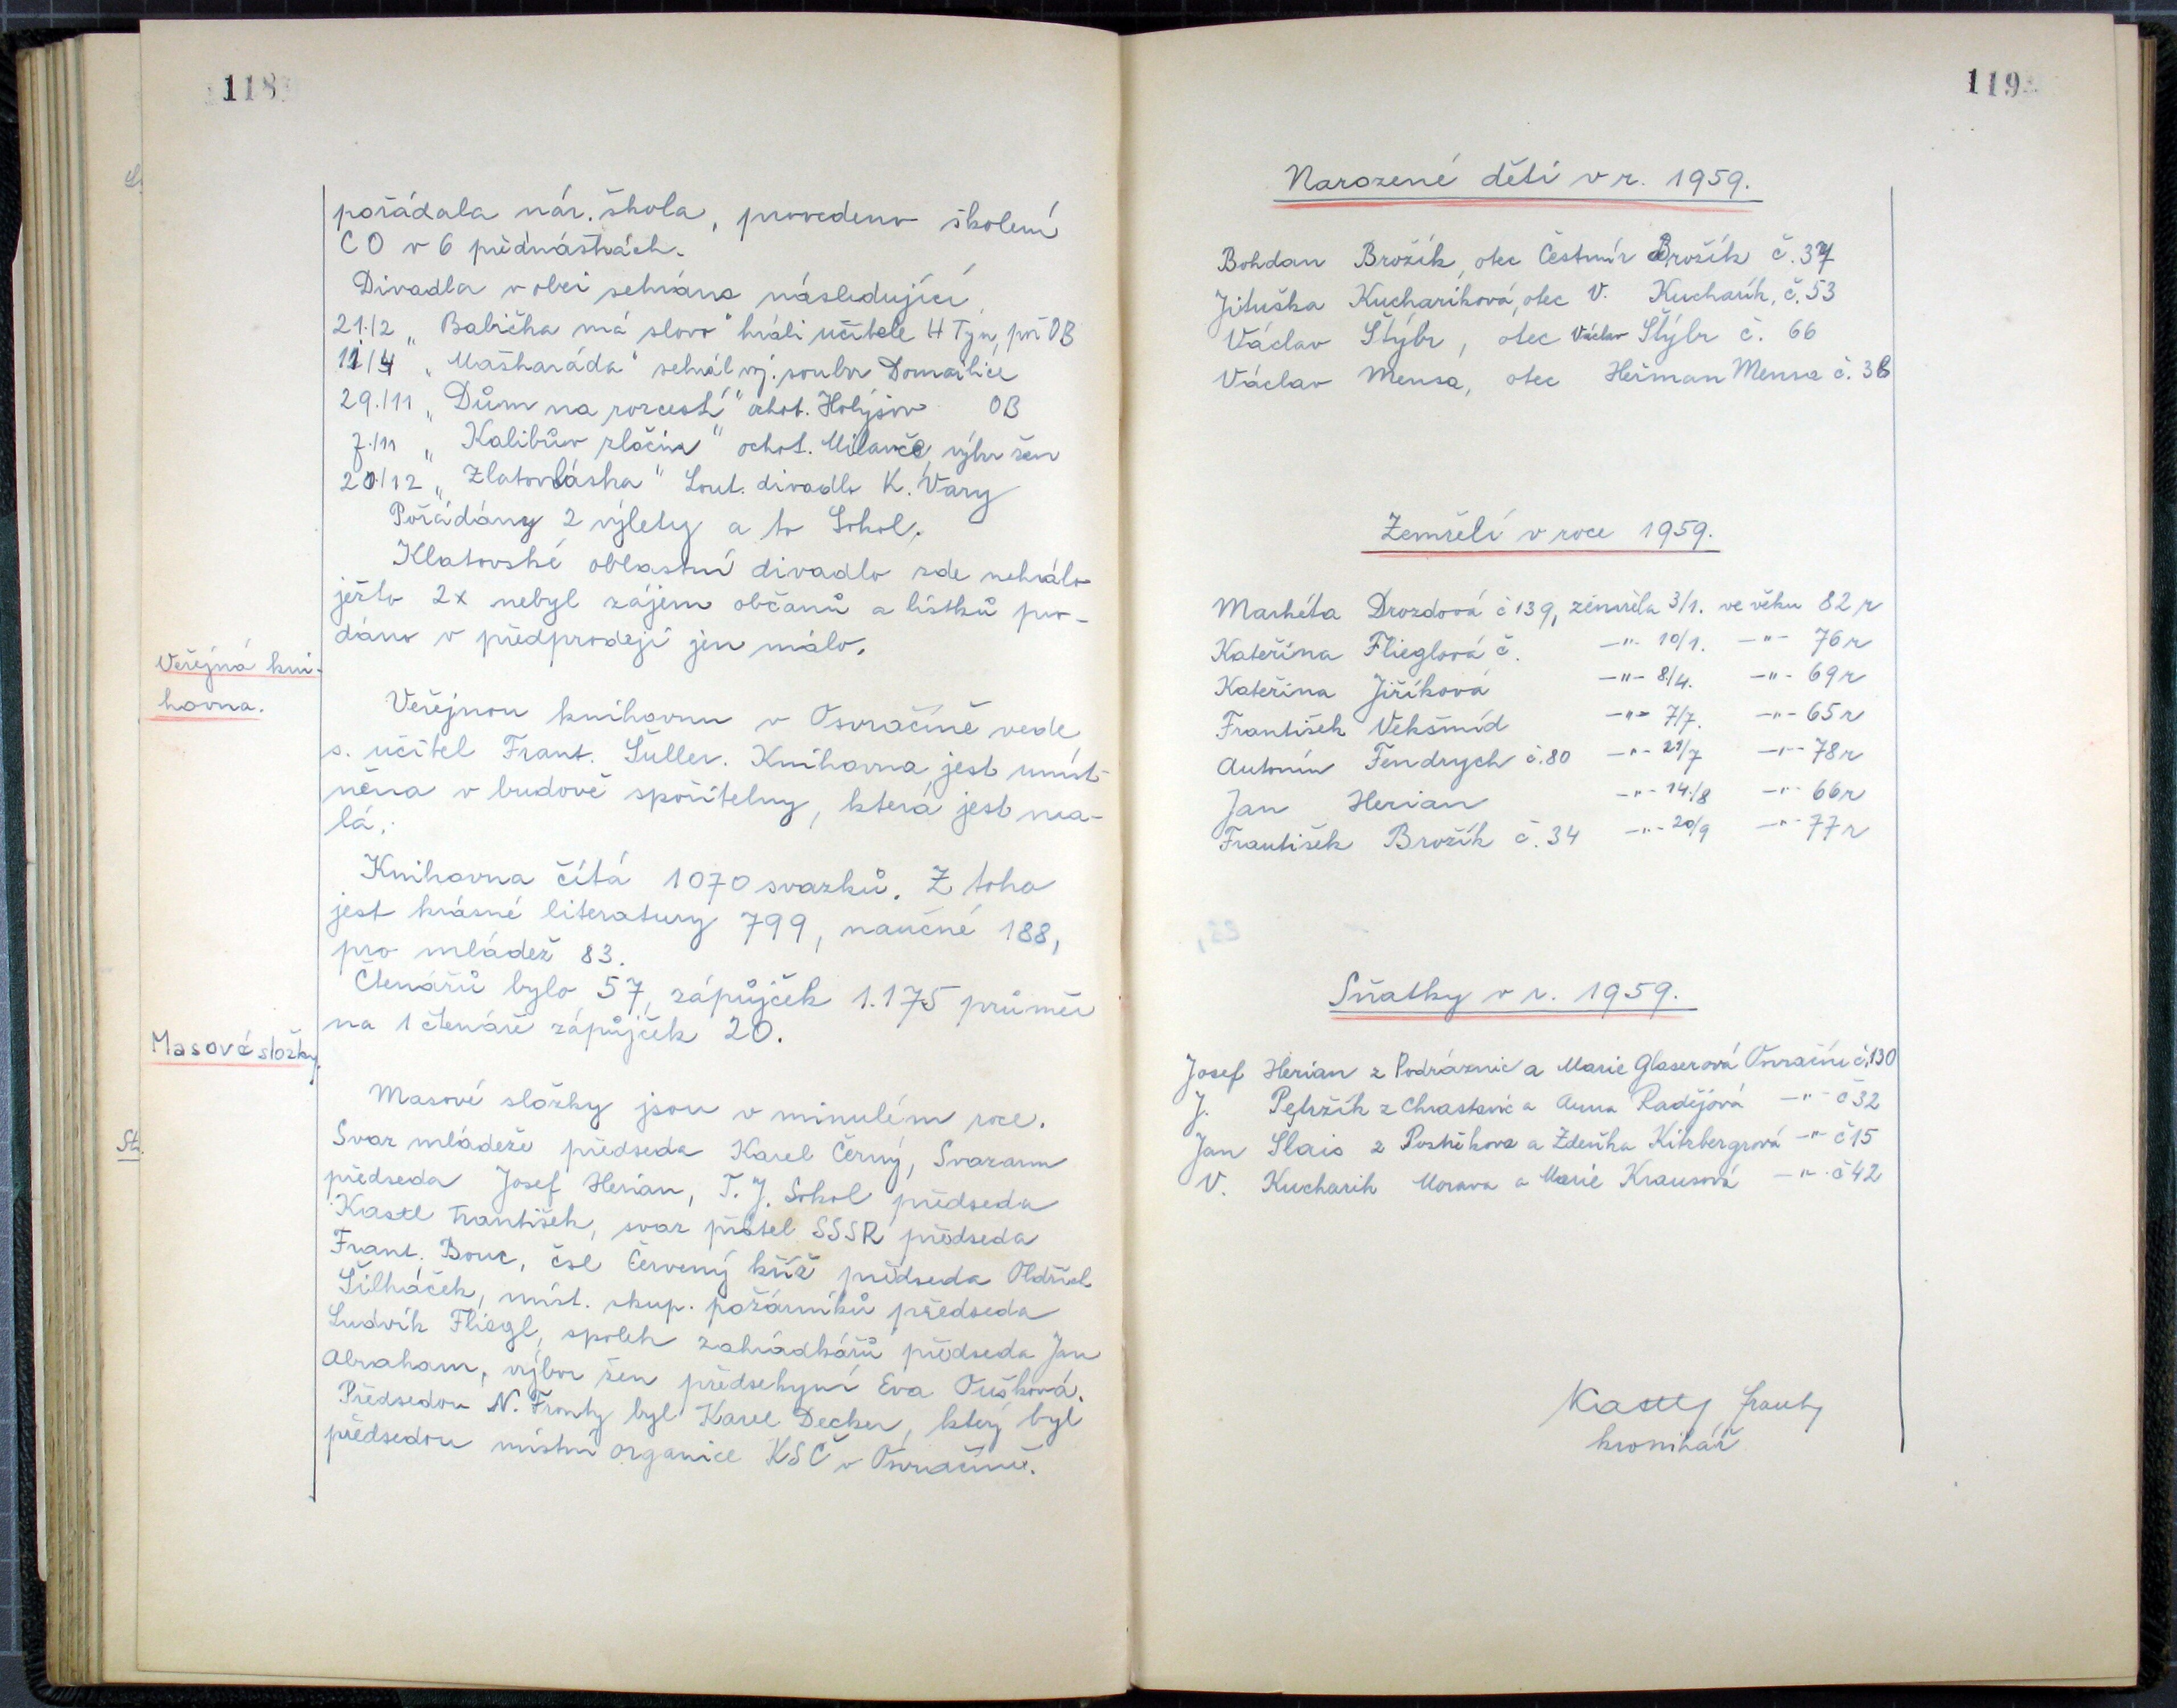 118
pořádala nár. škola, provedeno školení
CO v 6 přednáškách.
Divadla v obci sehrána následující
21./2 „Babička má slovo" hráli učitelé H Týn, poř OB
11/4 „Maškaráda" sehrál voj. soubor Domažlice
29./11 „Dům na rozcestí" ochot. Holýšov OB
7./11 „Kalibův zločin" ochot. Milavče výbor žen
20/12 „Zlatovláska" Lout. divadlo K. Vary
Pořádány 2 výlety a to Sokol.
Klatovské oblastní divadlo zde nehrálo
ježto 2x nebyl zájem občanů a lístků pro-
dáno v předprodeji jen málo.
Veřejná kni-
hovna.
Veřejnou knihovnu v Osvračíně vede
s. učitel Frant. Šuller. Knihovna jest umíst-
něna v budově spořitelny, která jest ma-
lá.
Knihovna čítá 1070 svazků. Z toho
jest krásné literatury 799, naučné 188,
pro mládež 83.
Čtenářů bylo 57, zápůjček 1.175 průměr
na 1 čtenáře zápůjček 20.
Masové složky.
Masové složky jsou v minulém roce.
Svaz mládeže předseda Karel Černý, Svazarm
předseda Josef Herian, T. J. Sokol předseda
Kastl František, svaz přátel SSSR předseda
Frant. Bouc, čsl Červený kříž předseda Oldřich
Šilháček, míst. skup. požárníků předseda
Ludvík Fliegl, spolek zahrádkářů předseda Jan
Abraham, výbor žen předsekyní Eva Oušková.
Předsedou N. Fronty byl Karel Decker, který byl
předsedou místní organice KSČ v Osvračíně.
119
Narozené děti v r. 1959.
Bohdan Brožík, otec Čestmír Brožík č. 37
Jituška Kuchariková, otec V. Kucharík, č. 53
Václav Štýbr, otec Václav Štýbr č. 66
Václav Mensa, otec Heřman Mensa č. 36
Zemřelí v roce 1959.
Markéta Drozdová č 139, zemřela 3/1. ve věku 82 r
Kateřina Flieglová č. —"— 10/1. —"— 76 r
Kateřina Jiříková —"— 8/4. —"— 69 r
František Vekšmíd —"— 7/7. —"— 65 r
Antonín Fendrych č. 80 —"— 21/7 —"— 78 r
Jan Herian —"— 14./8 —"— 66 r
František Brožík č. 34 —"— 20/9 —"— 77 r
Sňatky v r. 1959.
Josef Herian z Podrážnic a Marie Glaserová Osvračín č. 130
J. Petržík z Chrastavic a Anna Radějová —"— č 32
Jan Slais z Postřekova a Zdeňka Kitzbergrová —"— č 15
V. Kucharik Morava a Marie Krausová —"— č 42
Kastl
kronikář